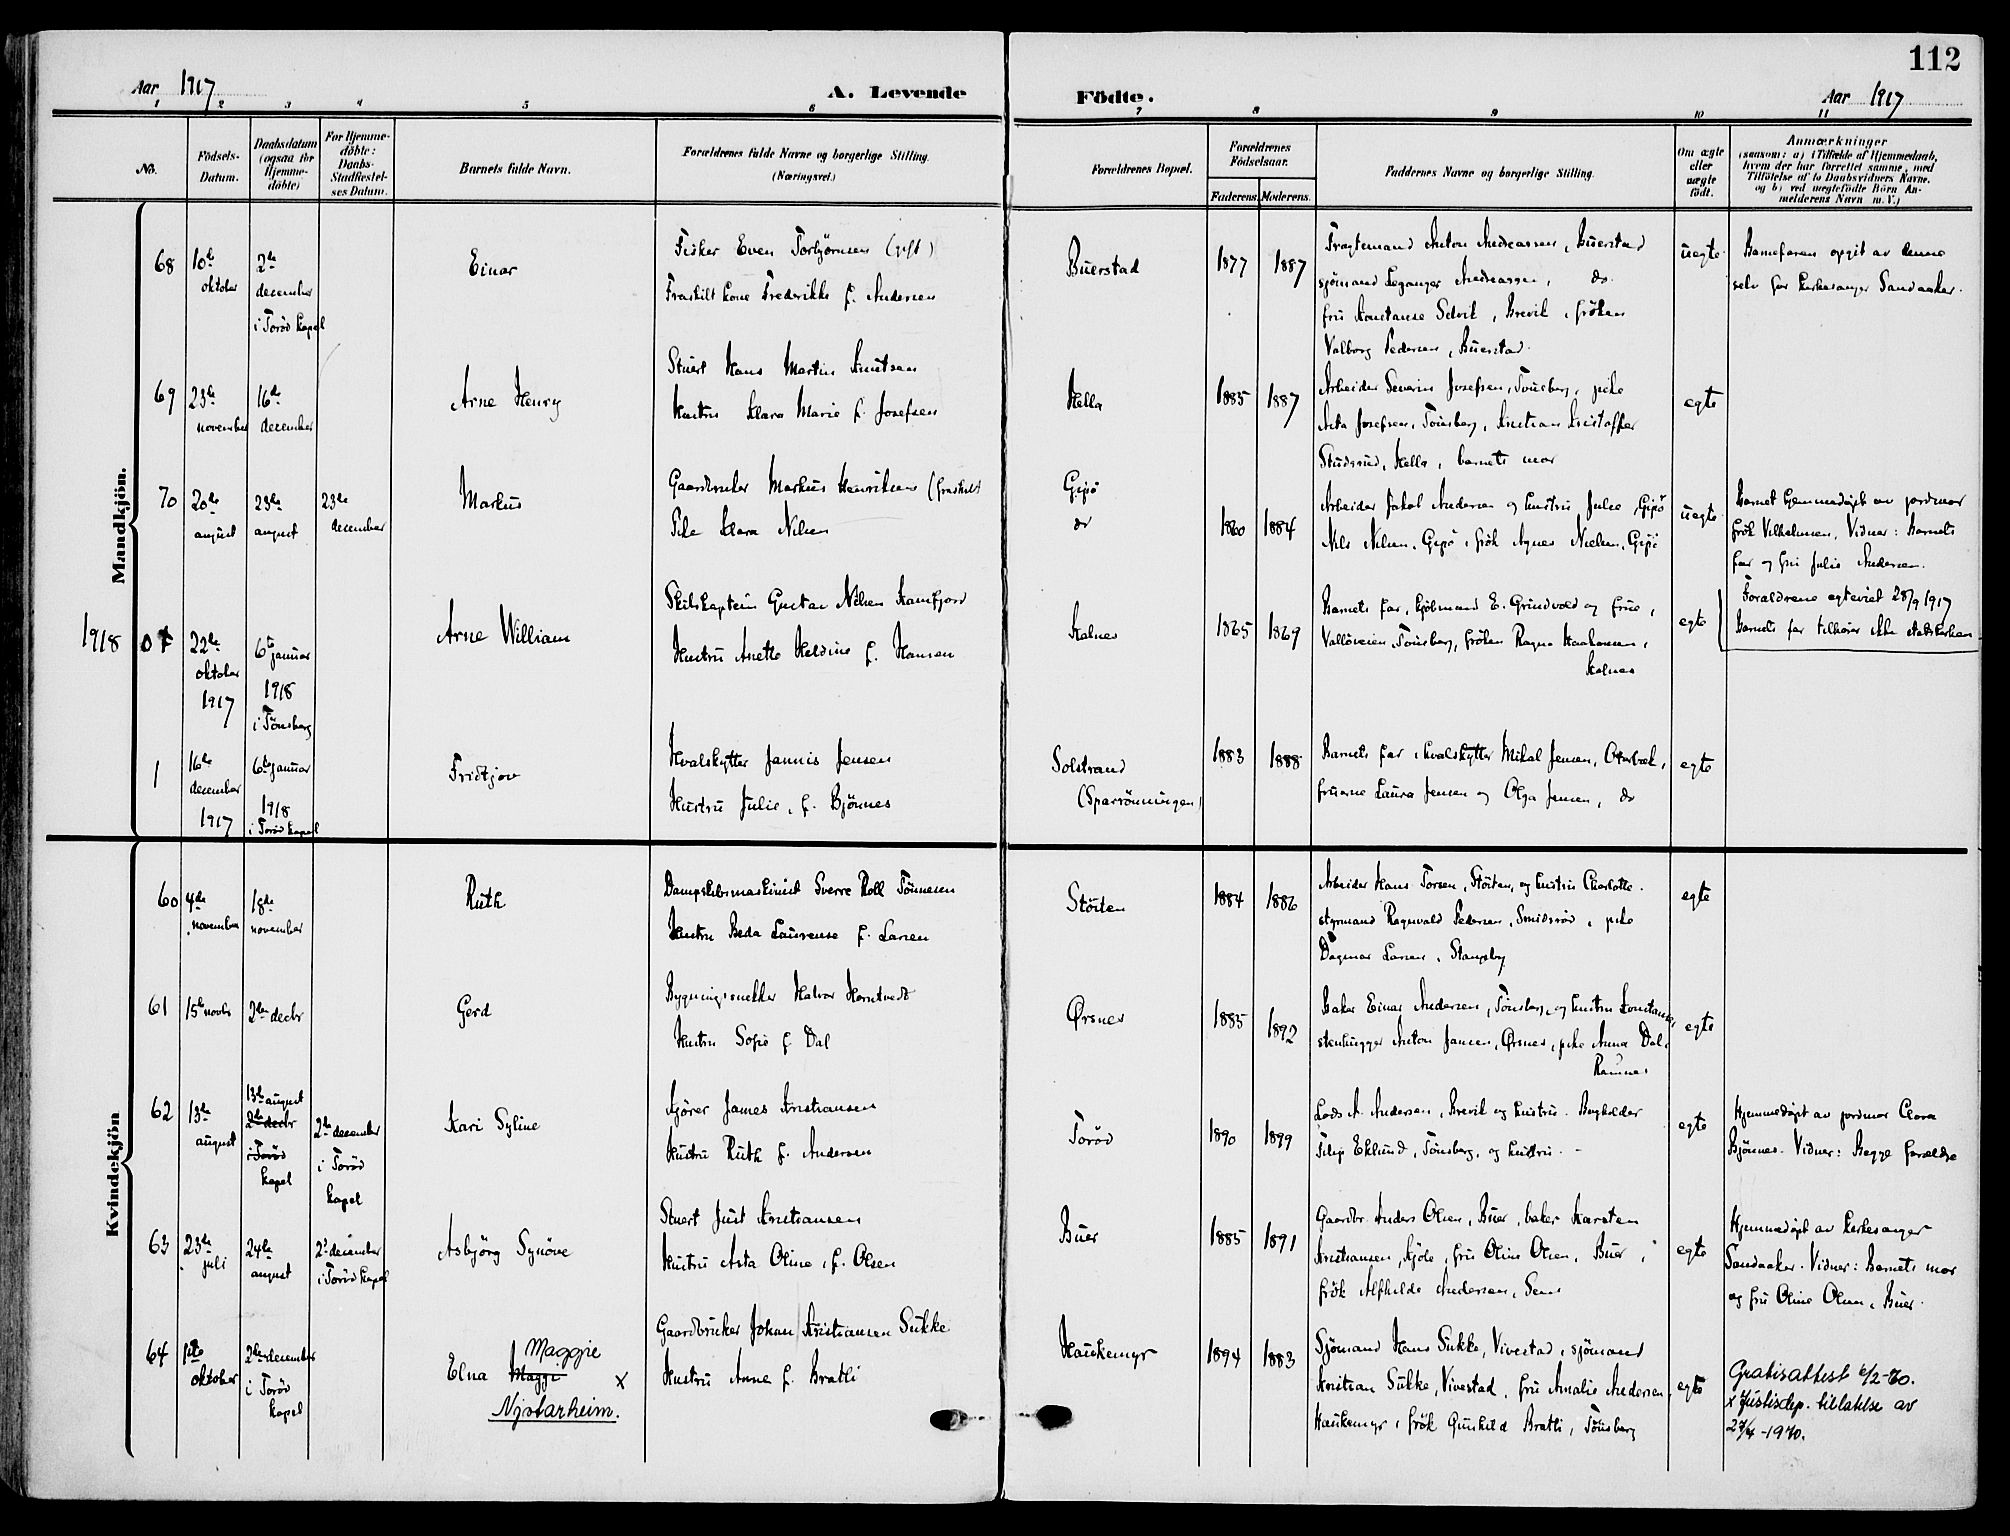 112
Aar 1917
A. Levende
Födte.
Aar 1917
1 2 3 4 5 6 7 8 9 10 11
No.
Födsels-Datum.
Daabsdatum (ogsaa for Hjemme-döbte)
For Hjemme-döbte: Daabs-Stadfæstel-ses Datum.
Barnets fulde Navn.
Forældrenes fulde Navne og borgerlige Stilling. (Næringsvei.)
Forældrenes Bopæl.
Forældrenes Födselsaar.
Faderens. Moderens.
Faddernes Navne og borgerlige Stilling.
Om ægte eller uægte födt.
Anmærkninger
(saasom: a) i Tilfælde af Hjemmedaab, hvem der har forrettet samme, med Tilföielse af to Daabsvidners Navne. og b) ved uægtefödte Börn An-melderens Navn m. V.)
Mandkjön.
68 10de oktober
2de december i Torød kapel
Einar
Fisker Even Torbjörnsen (gift)
Fraskilt kone Frederikke f. Andersen
Buerstad
1877 1887
Fragtemand Anton Andreassen, Buerstad
sjömand Leganger Andreassen, do.
fru Konstanse Selvik, Brevik, fröken
Valborg Pedersen, Buerstad.
uegte
Barnefaren opgit av denne
selv for kirkesanger Sandaaker.
69 23de november
16de december
Arne Henry
Stuert Hans Martin Knutsen
Hustru Klara Marie f. Josefsen
Hella
1885 1887
Arbeider Severin Josefsen, Tönsberg, pike
Asta Josefsen, Tönsberg, Kristian Kristoffer
Studsrud, Hella, barnets mor
egte
70 20de august
23de august
23de december
Markus
Gaardbruker Markus Henriksen (fraskilt)
Pike Klara Nilsen
Gipö
do
1860 1884
Arbeider Jakob Andersen og hustru Julie, Gipö
Nils Nilsen, Gipö, frök Agnes Nielsen, Gipö
uegte
Barnet hjemmedöpt av jordmor
frök Vilhelmsen, Vidner: Barnets
far og fru Julie Andersen.
Forældrene egteviet 28/9 1917
1918 07 22de oktober 1917
6te januar 1918 i Tönsberg
Arne William
Skibskaptein Gustav Nilsen Kamfjord
Hustru Anette Heldine f. Hansen
Kalnes
1865 1869
Barnets far, kjöbmand E. Grindvold og frue,
Vallöveien, Tönsberg, fröken Ragna Haakonsen,
Kalnes
egte
Barnets far tilhörer ikke statskirken
1 16de december 1917
6te januar 1918 i Torød kapel
Fridtjov
Hvalskytter Jannis Jensen
Hustru Julie, f. Bjönnes
Solstrand
(Sparrönningen)
1883 1888
Barnets far, hvalskytter Mikal Jensen, Oterbæk,
fruerne Laura Jensen og Olga Jensen, do
egte
Kvindekjön
60 4de november
18de november
Ruth
Dampskibsmaskinist Sverre Roll Tönnesen
Hustru Beda Laurense f. Larsen
Stöiten
1884 1886
Arbeider Hans Torsen, Stöiten, og hustru Charlotte.
styrmand Ragnvald Pedersen, Smidsröd, pike
Dagmar Larsen, Stangeby
egte
61 15de novbr
2den decbr
Gerd
Bygningssnekker Halvor Horntvedt
Hustru Sofie f. Dal
Ørsnes
1885 1892
Baker Einar Andersen, Tönsberg, og hustru Konstanse,
stenhugger Anton Jansen, Ørsnes, pike Anna Dal,
Ramnes
egte
62 13de august
13de august
2de decbr
i Torød kapel
2de december i Torød kapel
Kari Syline
Kjörer James Kristiansen
Hustru Ruth f. Andersen
Torød
1890 1899
Lods A. Andersen, Brevik og hustru. Bogholder
Filip Eklund, Tönsberg, og hustru.
egte
Hjemmedöpt av jordmor Clara
Bjönnes. Vidner: Begge forældre
63 23de juli
24de august
2de december i Torød kapel
Asbjörg Synöve
Stuert Just Kristiansen
Hustru Asta Oline, f. Olsen
Buer
1885 1891
Gaardbr. Anders Olsen, Buer, baker Karsten
Kristiansen, Kjöle, fru Oline Olsen, Buer,
frök Alfhilde Andersen, Sem
egte
Hjemmedöpt av kirkesanger
Sandaaker. Vidner: Barnets mor
og fru Oline Olsen, Buer.
64 1ste oktober
2den december i Torød kapel
Maggie
Elna Maggi x
Nystarheim.
Gaardbruker Johan Kristiansen Sukke
Hustru Anna f. Bratli
Haukemyr
1894 1883
Sjömand Hans Sukke, Vivestad, sjömand
Kristian Sukke, Vivestad, fru Amalie Andersen,
Haukemyr, frök Gunhild Bratli, Tönsberg
egte
Gratisattest 6/2-70.
x Justisdep. tillatelse av
27/4-1970.